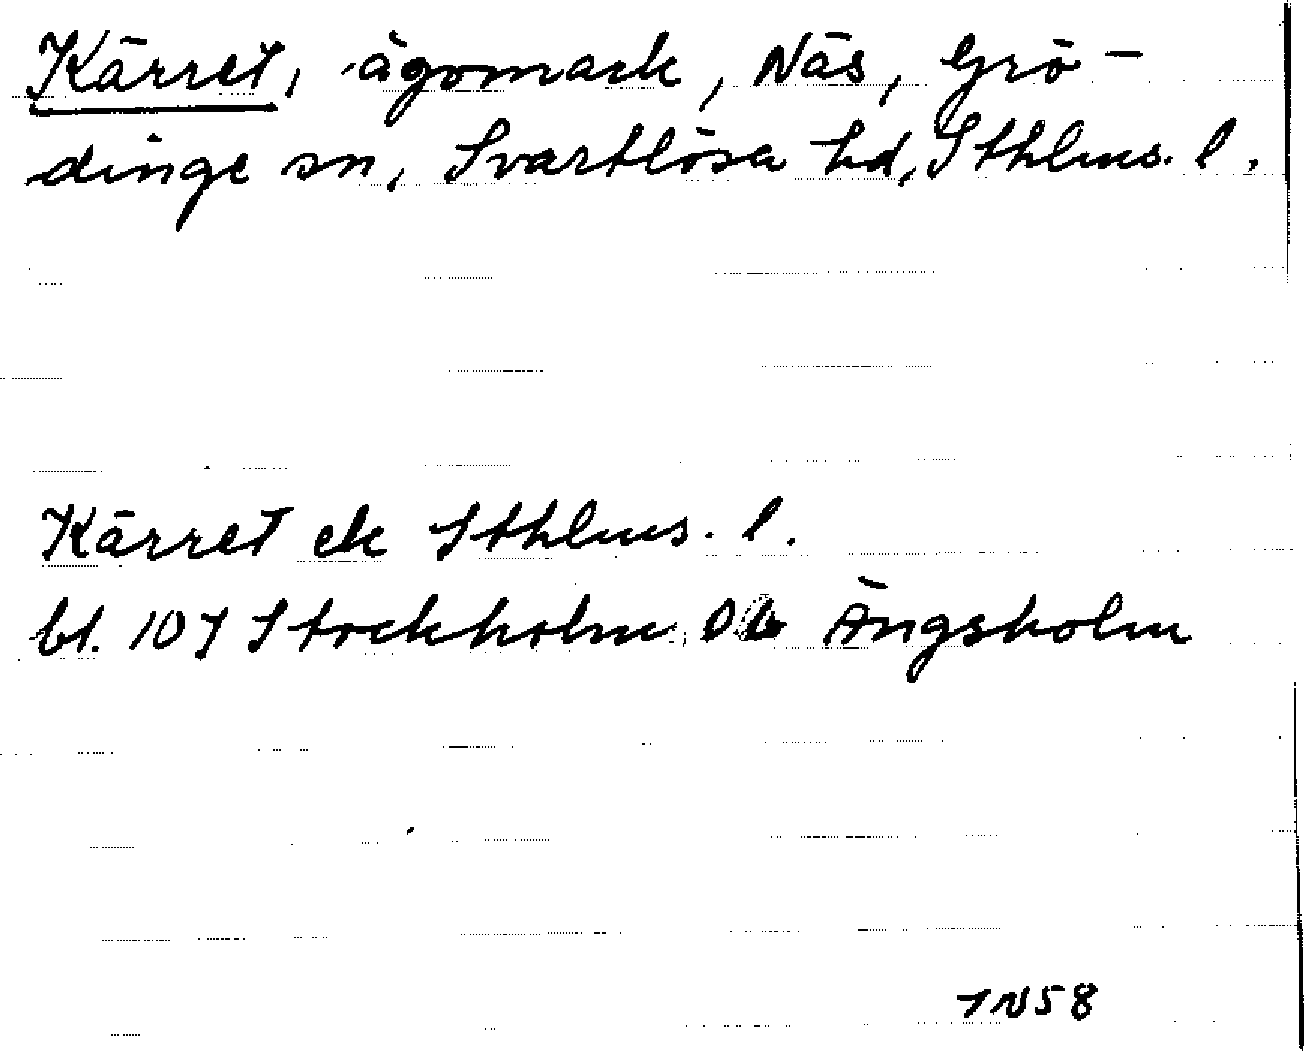 Kärret, ägomark, Näs, Grö-
dinge sn, Svartlösa hd, Sthlms. l.
Kärret ek Sthlms. l.
bl. 107 Stockholm Ängsholm
IN58